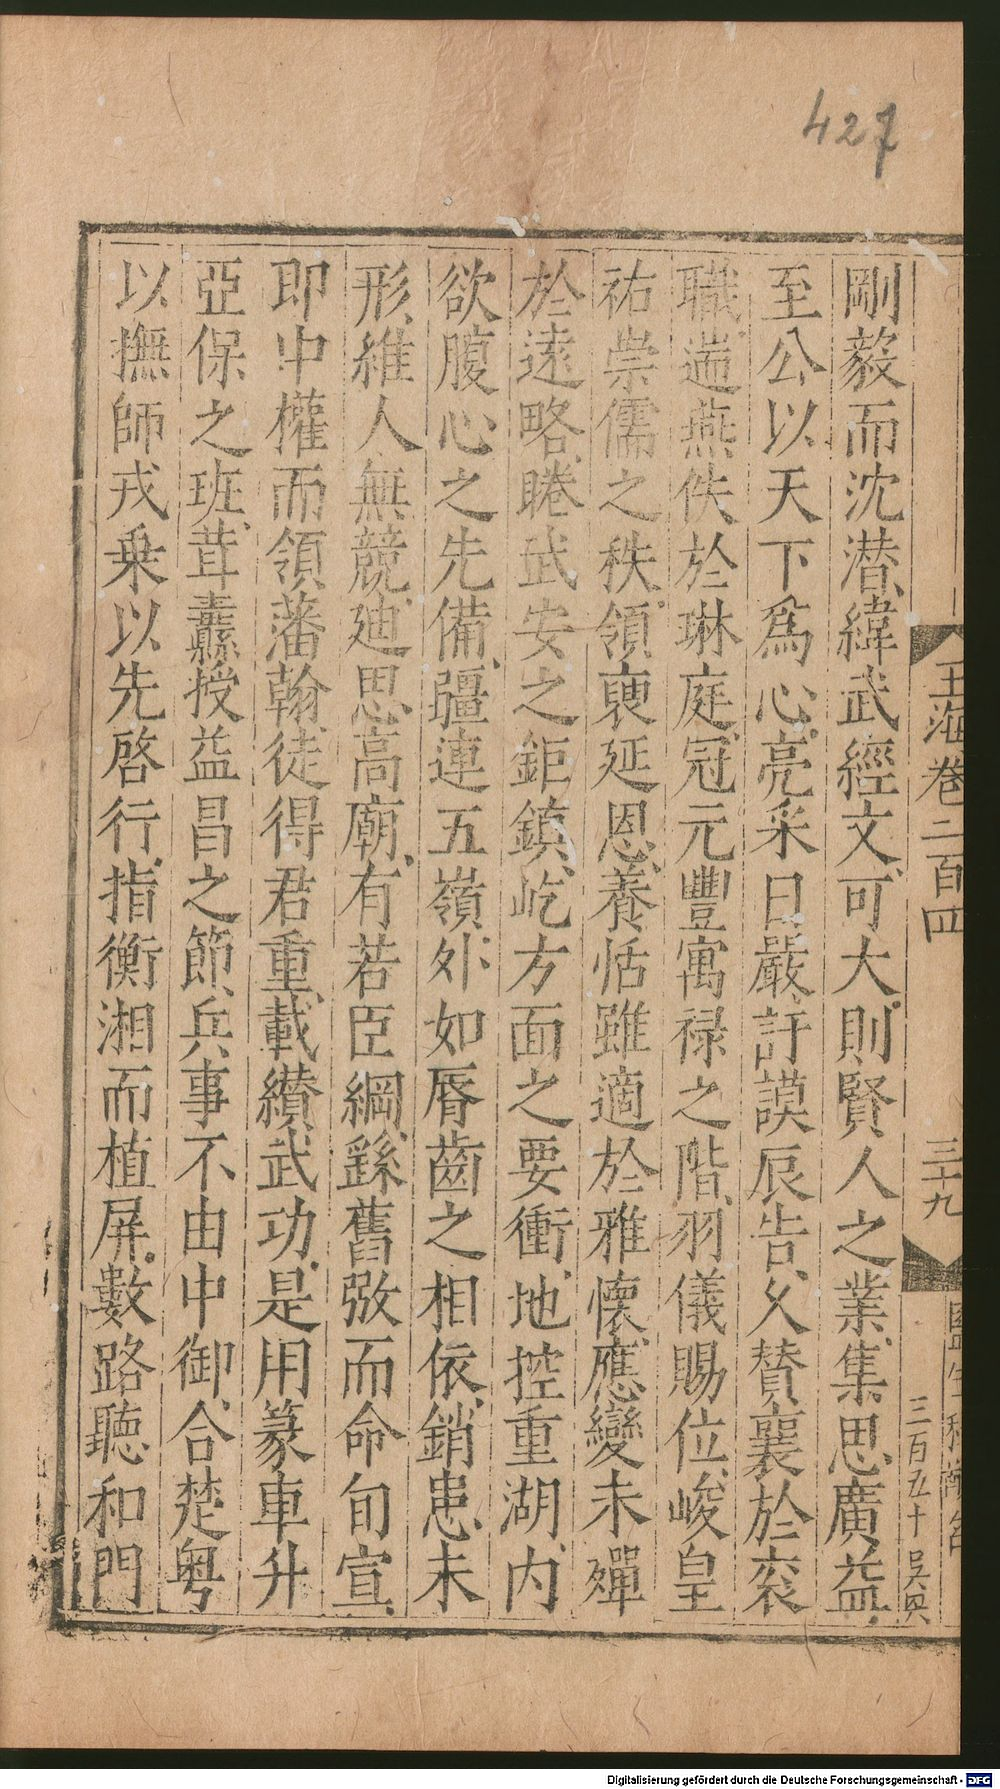 427
玉海卷二百四
三十九
三百五十
剛毅而沈潜緯武經文可大則賢人之業集思廣益
至公以天下爲心亮采日嚴訏謨辰告久賛襄於衮
職遄燕佚於琳庭冠元豐寓禄之階羽儀賜位峻皇
祐崇儒之秩領䆠延恩養恬雖適於雅懷應變未殫
於逺略睠武安之鉅鎮屹方面之要衝地控重湖内
欲腹心之先備疆連五嶺外如脣齒之相依銷患未
形維人無競廸思高廟有若臣綱繇舊弢而命旬宣
即中權而領藩翰徒得君重載纉武功是用篆車升
亞保之班茸纛授益昌之節兵事不由中御合楚粤
以撫師戎乗以先啓行指衡湘而植屏數路聽和門
Digitalisierung gefördert durch die Deutsche Forschungsgemeinschaft - DFG